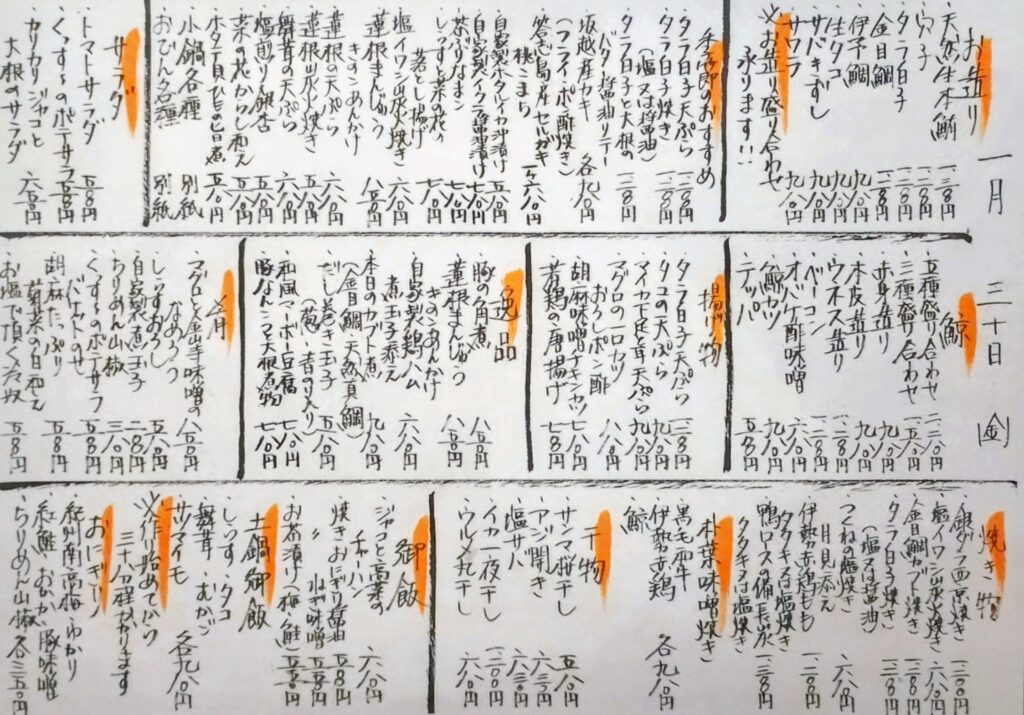 一月三十日㊎
お造り
・天然生本鮪 一、二八〇円
・穴子
・タラ白子 一、二八〇円
・金目鯛 一、二八〇円
・伊予鯛 九八〇円
・生タコ 九八〇円
・サバきずし 九八〇円
・サワラ 九八〇円
※お造り盛り合わせ
承ります!!
季節のおすすめ
・タラ白子天ぷら 一、二八〇円
・タラ白子焼き 一、二八〇円
(塩又は醤油)
・タラ白子と大根の
バター醤油ソテー 一、二八〇円
・坂越産カキ 各九八〇円
(フライ・ポン酢・焼き)
・答志島産セルガキ
桃こまち 一ヶ六八〇円
・自家製ホタルイカ沖漬け
・自家製イクラ醤油漬け 七八〇円
・茶ぶりなまこ 七八〇円
・しらすと菜の花の
岩とし揚げ 七八〇円
・塩イワシ炭火焼き 六八〇円
・蓮根まんじゅう
きのこあんかけ 八五〇円
・蓮根の天ぷら 六八〇円
・蓮根炭火焼き 五八〇円
・舞茸の天ぷら 六八〇円
・塩煎り銀杏 五五〇円
・菜の花からし和え 五五〇円
・ホタテ貝ひもの旨煮 五五〇円
・小鍋各種 別紙
・おでん各種 別紙
サラダ
・トマトサラダ 五五〇円
・くんすらのポテサラ 五八〇円
・カリカリジャコと
大根のサラダ 六五〇円
鯨
・五種盛り合わせ 二、二八〇円
・三種盛り合わせ 一、五八〇円
・赤身造り 九八〇円
・本皮造り 九八〇円
・ウネス造り 一、二八〇円
・ベーコン 一、二八〇円
・オバケ酢味噌 六八〇円
・鯨カツ 九八〇円
・テッパ 五五〇円
揚げ物
・タラ白子天ぷら 一、二八〇円
・タコの天ぷら 九八〇円
・マイカ下足と耳天ぷら 九八〇円
・マグロの一口カツ
おろしポン酢 八八〇円
・胡麻味噌チキンカツ 七八〇円
・若鶏の唐揚げ 七五〇円
逸品
・豚の角煮 八五〇円
・蓮根まんじゅう
きのこあんかけ 八五〇円
・自家製鶏ハム
煮玉子添え 六八〇円
・本日のカブト煮 九八〇円
(金目鯛・天然真鯛)
・だし巻き玉子 五八〇円
(葱、青のり入り)
・和風マーボー豆腐 七八〇円
・豚なんこつ大根煮物 七八〇円
肴
・マグロと金山寺味噌の
なめろう 八五〇円
・しらすおろし 五八〇円
・自家製煮玉子 二八〇円
・ちりめん山椒 三八〇円
・くんすらのポテサラ
バケットのせ 五八〇円
・胡麻たっぷり
菊菜の白和え 五五〇円
・お塩で頂く冷奴 五五〇円
焼き物
・銀ダラ西京焼き 一、二〇〇円
・塩イワシ炭火焼き 六八〇円
・金目鯛カブト焼き 一、二八〇円
・タラ白子焼き 一、二八〇円
(塩又は醤油)
・つくねの塩焼き
月見添え 六八〇円
・伊勢赤鶏もも
タタキ又は塩焼き 一、二〇〇円
・鴨ロース備長炭
タタキ又は塩焼き 一、二八〇円
朴葉味噌焼き
・黒毛和牛
・伊勢赤鶏 各九八〇円
・鯨
干物
・サンマ桜干し 五八〇円
・アジ開き 六八〇円
・塩サバ 六八〇円
・イカ一夜干し 一、二〇〇円
・ウルメ丸干し 六八〇円
御飯
・ジャコと高菜の
チャーハン 六八〇円
・焼きおにぎり醤油 五八〇円
・〃 山椒味噌 五五〇円
・お茶漬け(梅・鮭) 五五〇円
土鍋御飯
・しらす、タコ
舞茸、むかご
サツマイモ 各九八〇円
※作り始めてから
三十分程かかります
おにぎり
・紀州南高梅、ゆかり
紅鮭、おかか、豚味噌
ちりめん山椒 各三五〇円